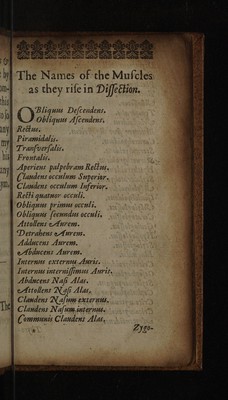 The Names of the Muscles
as they rise in Dissection.
OBliquum Descendens.
Obliquum Ascendens.
Rectus.
Piramidalis.
Transversalis.
Frontalis.
Aperiens palpebram Rectus.
Claudens occulum Superior.
Claudens occulum Inferior.
Recti quatuor occuli.
Obliquus primus occuli.
Obliquus secundus occuli.
Attollens Aurem.
Detrahens Aurem.
Adducens Aurem.
Abducens Aurem.
Internus externus Auris.
Internus internissimus Auris.
Abducens Nasi Alas.
Attollens Nasi Alas.
Claudens Nasum externus.
Claudens Nasum internus.
Communis Claudens Alas,
Zygo-
The